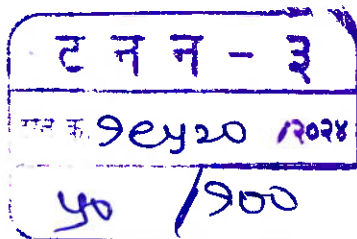 ट न न - ३
दस्त क्र. १९५२० /२०२४
५० /१००